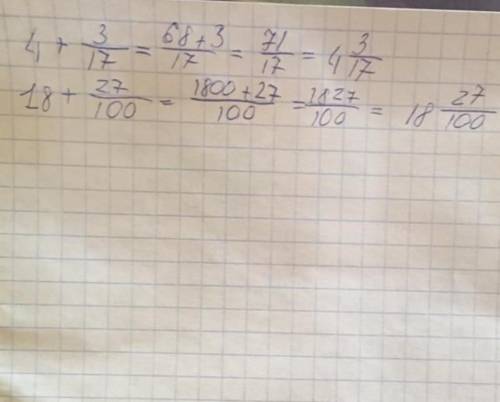 4 + 3/17 = 68+3/17 = 71/17 = 4 3/17
18 + 27/100 = 1800+27/100 = 1827/100 = 18 27/100